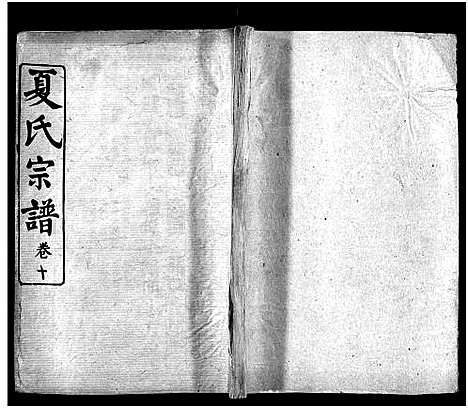 夏氏宗譜
卷十